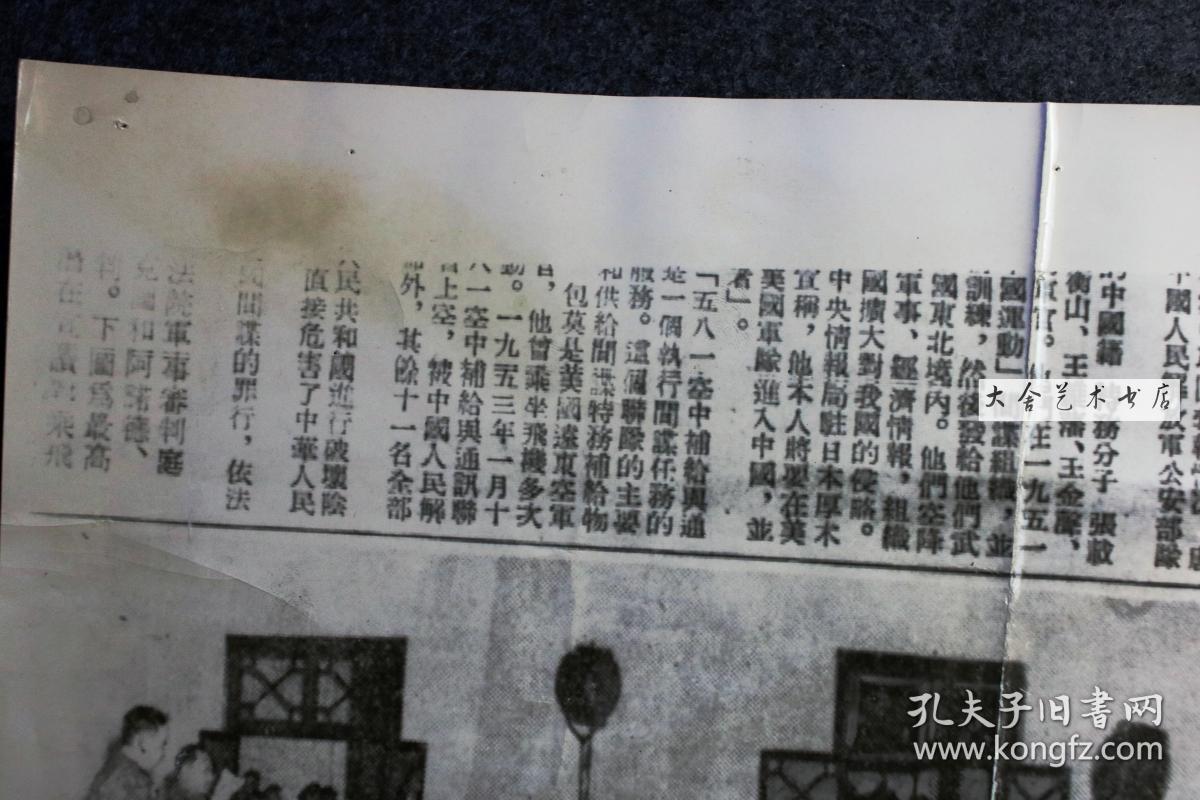 中國人民解放軍公安部隊
的中國籍 特務分子 張載
衡山、王 藩、王金聲、
官。 在一九五一
國運動」 諜組織，並
訓練，然後發給他們武
國東北境內。他們空降
軍事、經濟情報，組織
國擴大對我國的侵略。
中央情報局駐日本厚木
宣稱，他本人將要在美
美國軍隊進入中國，並
者」。
「五八一空中補給與通
是一個執行間諜任務的
服務。這個聯隊的主要
和供給間諜特務補給物
包莫是美國遠東空軍
官，他曾乘坐飛機多次
動。一九五三年一月十
八一空中補給與通訊聯
省上空，被中國人民解
部外，其餘十一名全部
人民共和國進行破壞陰
直接危害了中華人民
民間諜的罪行，依法
法院軍事審判庭
克圖和阿諾德、
判。下圖爲最高
在 乘飛
大舍艺术书店
孔夫子旧書网
www.kongfz.com